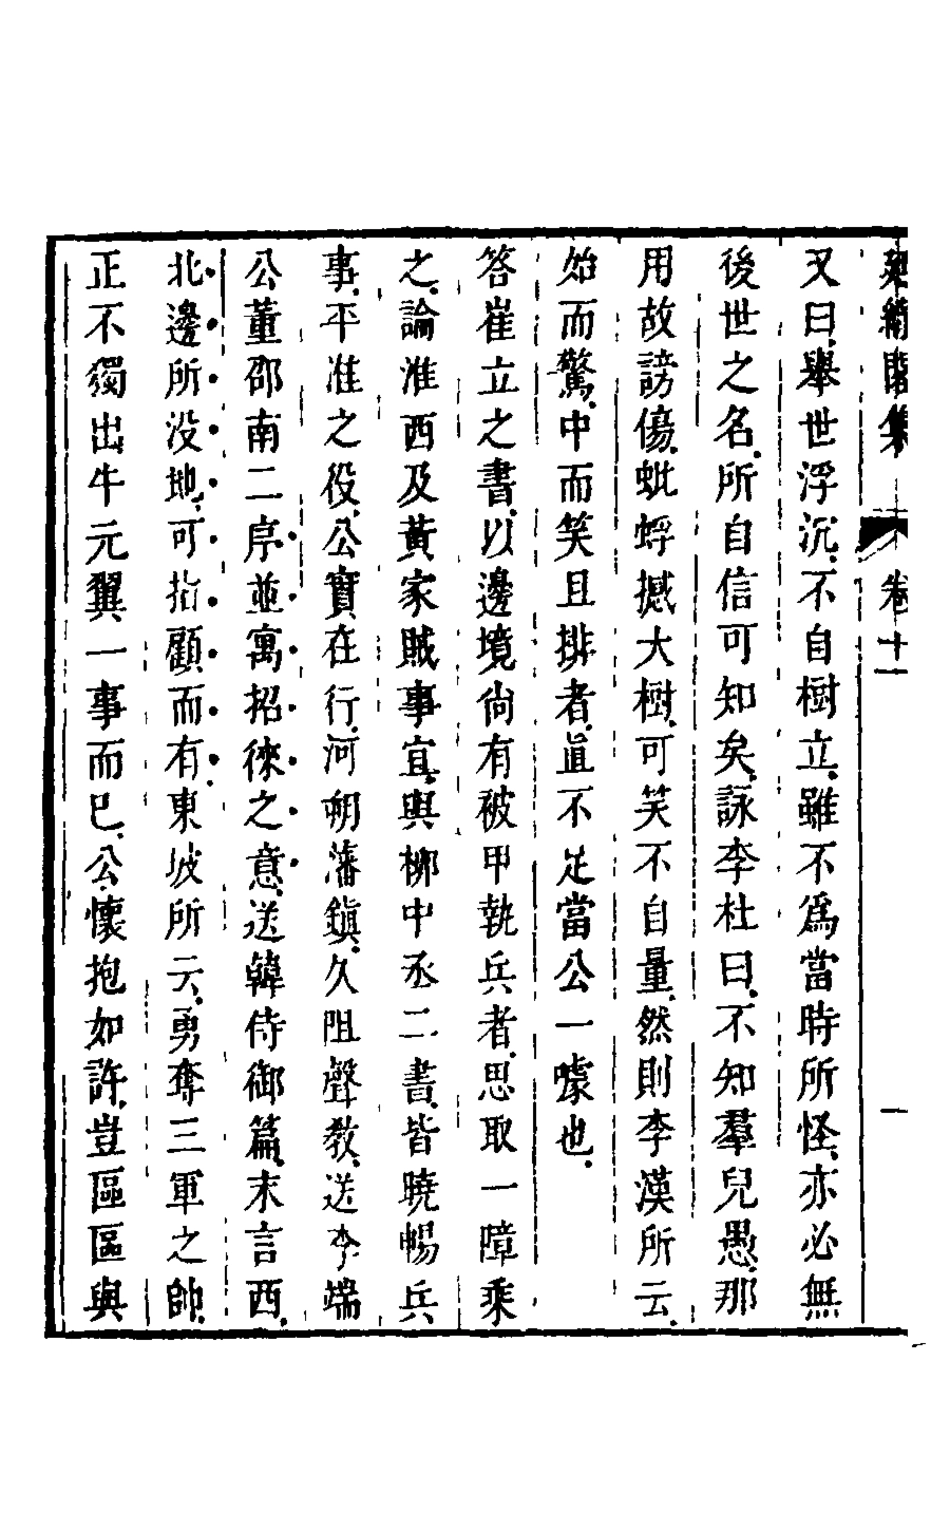 集 卷十一
又曰舉世浮沉不自樹立雖不爲當時所怪亦必無
後世之名所自信可知矣詠李杜曰不知羣兒愚那
用故謗傷蚍蜉撼大樹可笑不自量然則李漢所云
始而驚中而笑且排者眞不足當公一噱也
答崔立之書以邊境尙有被甲執兵者思取一障乘
之論淮西及黃家賊事宜與柳中丞二書皆曉暢兵
事平淮之役公實在行河朔藩鎭久阻聲敎送李端
公董邵南二序並寓招徠之意送韓侍御篇末言西
北邊所没地可指顧而有東坡所云勇奪三軍之帥
正不獨出牛元翼一事而已公懷抱如許豈區區與